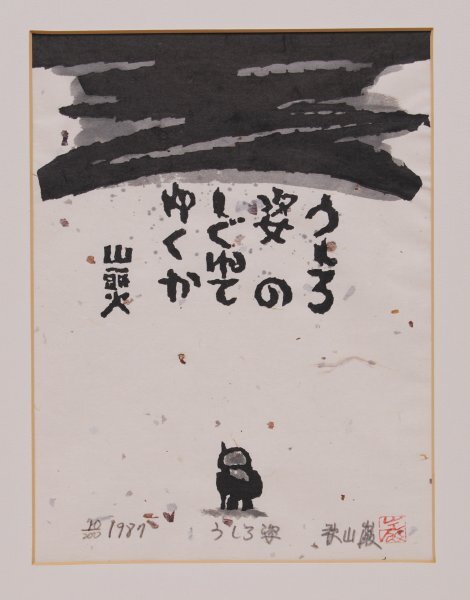 うしろ
姿の
しぐれて
ゆくか
山頭火
20/200 1987 うしろ姿 秋山巌